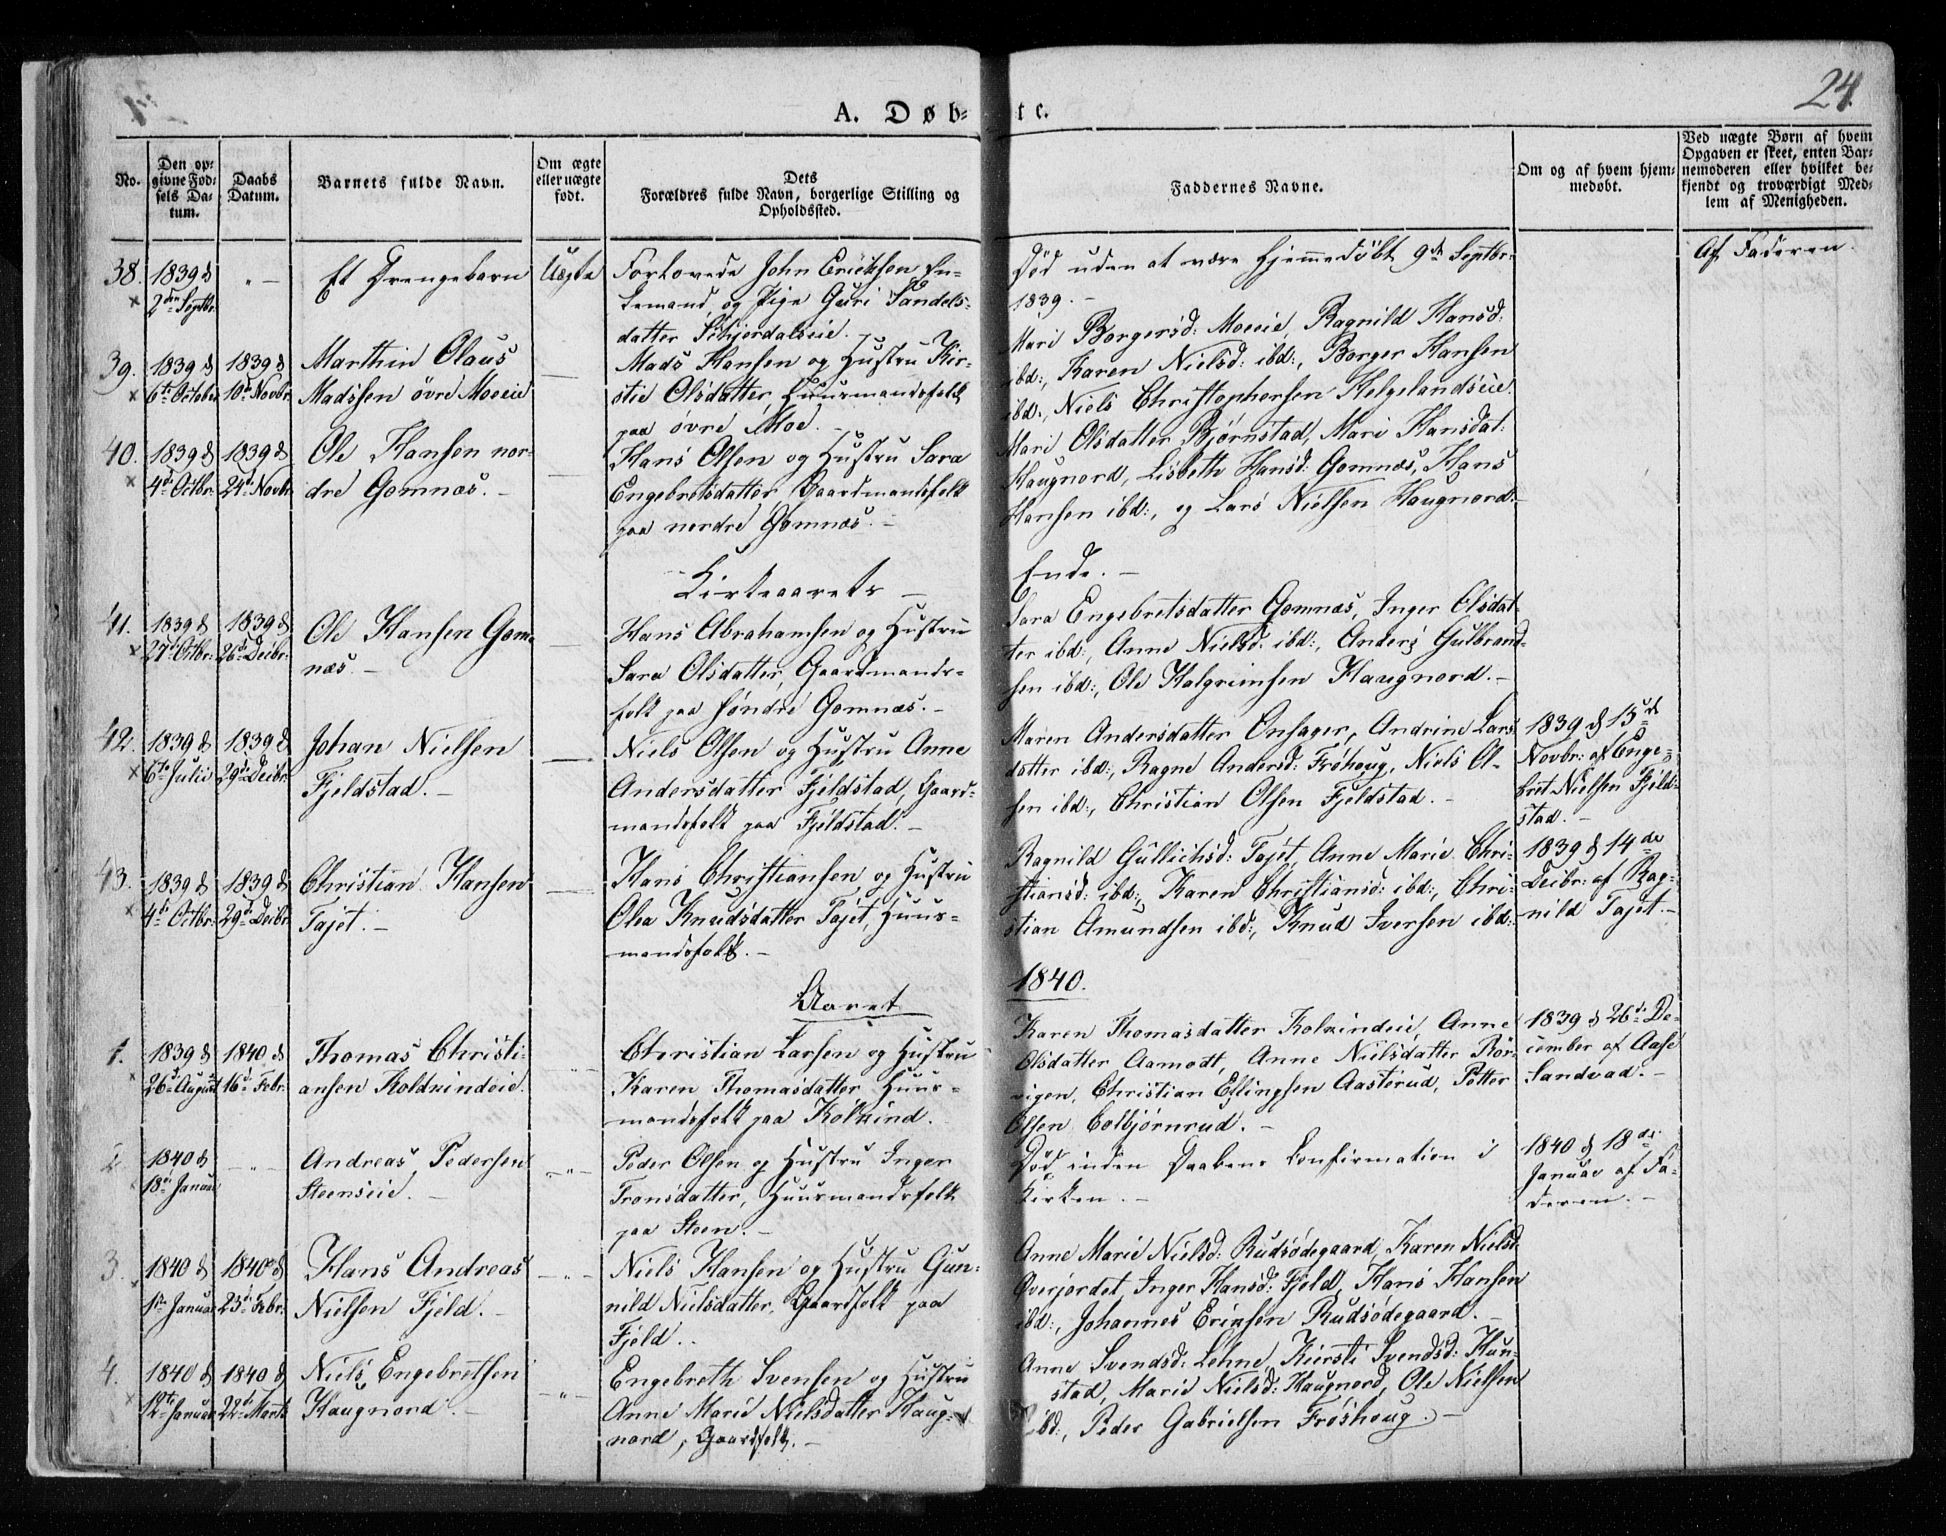 24.
A. Døb-
te.
No.
Den op-
givne Fød-
sels Da-
tum.
Daabs
Datum.
Barnets fulde Navn.
Om ægte
eller uægte
født.
Dets
Forældres fulde Navn, borgerlige Stilling og
Opholdssted.
Faddernes Navne.
Om og af hvem hjem-
medøbt.
Ved uægte Børn af hvem
Opgaven er skeet, enten Bar-
nemoderen eller hvilket be-
kjendt og troværdigt Med-
lem af Menigheden.
38.
1839 d
2den Septbr:
Et Drengebarn
Uægte
Forlovede John Ericksen In-
, og Pige Guri Sandels-
datter Schjerdalseie.
Død uden at være hjemmedøbt 9de Septbr:
1839.-
Af Faderen.
39.
1839 d
6te October
1839 d
10de Novbr:
Marthin Olaus
Madssen övre Moeeie
Mads Hansen og Hustru Kir-
stie Olsdatter, Huusmandsfolk
paa øvre Moe.-
Mari Borgersd: Moeeie, Ragnild Hansd:
ibd:, Karen Nielsd: ibd:, Borger Hansen
ibd:, Niels Christophersen Helgelandseie.
40.
1839 d
4de Octbr:
1839 d
24de Novbr:
Ole Hansen nor-
dre Gomnæs.-
Hans Olsen og Hustru Sara
Engebretsdatter, Gaardmandsfolk
paa nordre Gomnæs.-
Mari Olsdatter Bjørnstad, Mari Hansdat:
Haugnord, Lisbeth Hansd: Gomnæs, Hans
Hansen ibd:, og Lars Nielsen Haugnord.-
Kirkeaarets
Ende.-
41.
1839 d
27de Octbr:
1839 d
26de Decbr:
Ole Hansen Gom-
næs.-
Hans Abrahamsen og Hustru
Sara Olsdatter, Gaardmands-
folk paa søndre Gomnæs.-
Sara Engebretsdatter Gomnæs, Inger Olsdat-
ter ibd:, Anne Nielsd: ibd:, Anders Gulbrand-
sen ibd:, Ole Halgrimsen Haugnord.-
42.
1839 d
6te Julii
1839 d
29de Decbr:
Johan Nielsen
Fjeldstad.-
Niels Olsen og Hustru Anne
Andersdatter Fjeldstad, Gaard-
mandsfolk paa Fjeldstad.-
Maren Andersdatter Onsager, Andrine Lars
datter ibd:, Ragne Andersd: Frøhoug, Niels Ol-
sen ibd:, Christian Olsen Fjeldstad.-
1839 d 15de
Novbr: af Enge-
bret Nielsen Fjeld-
stad.-
43.
1839 d
4de Octbr:
1839 d
29de Decbr:
Christian Hansen
Tajet.-
Hans Christiansen og Hustru
Olea Knudsdatter Tajet, Huus-
mandsfolk.-
Ragnild Gullichsd: Tajet, Anne Marie Chri-
stiansd: ibd:, Karen Christiansd: ibd:, Chri-
stian Amundsen ibd:, Knud Iversen ibd:
1839 d 14de
Decbr: af Rag-
nild Tajet.-
Aaret
1840.
1.
1839 d
26de August
1840 d
16de Febr:
Thomas Christi-
ansen Kolkindeie.
Christian Larsen og Hustru
Karen Thomasdatter, Huus-
mandsfolk paa Kolkind.
Karen Thomasdatter Kolkindeie, Anne
Olsdatter Aamodt, Anne Nielsdatter Rör-
vigen, Christian Ellingsen Aasterud, Petter
Olsen Colbjørnrud.-
1839 d 26de De-
cember af Aase
Sandvad.-
2.
1840 d
18de Januar
Andreas Pedersen
Steenseie.-
Peder Olsen og Hustru Inger
Tronsdatter, Huusmandsfolk
paa Steen.-
Død inden Daabens Confirmation i
Kirken.-
1840 d 18de
Januar af Fa-
deren.-
3.
1840 d
1ste Januar
1840 d
23de Febr:
Hans Andreas
Nielsen Fjeld.-
Niels Hansen og Hustru Gun-
nild Nielsdatter, Gaardfolk paa
Fjeld.-
Anne Marie Nielsd: Rudsödegaard, Karen Nielsd:
Overjordet, Inger Hansd: Fjeld, Hans Hansen
ibd:, Johannes Eriksen Rudsödegaard.-
4.
1840 d
12te Januar
1840 d
22de Marts
Niels Engebrethsen
Haugnord.-
Engebreth Svensen og Hustru
Anne Marie Nielsdatter Haug-
nord, Gaardfolk.-
Anne Svendsd: Lehne, Kiersti Svendsd: Hun-
stad, Marie Nielsd: Haugnord, Ole Nielsen
ibd:, Peder Gabrielsen Frøshoug.-